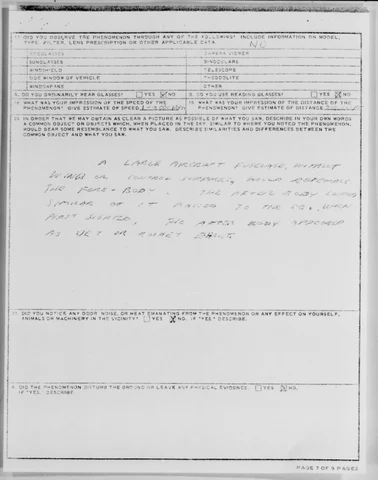 17 DID YOU OBSERVE THE PHENOMENON THROUGH ANY OF THE FOLLOWING? INCLUDE INFORMATION ON MODEL,
TYPE, FILTER, LENS PRESCRIPTION OR OTHER APPLICABLE DATA. NO
EYEGLASSES CAMERA VIEWER
SUNGLASSES BINOCULARS
WINDSHIELD TELESCOPE
SIDE WINDOW OF VEHICLE THEODOLITE
WINDOWPANE OTHER
DO YOU ORDINARILY WEAR GLASSES? YES NO DO YOU USE READING GLASSES? YES NO
WHAT WAS YOUR IMPRESSION OF THE SPEED OF THE WHAT WAS YOUR IMPRESSION OF THE DISTANCE OF THE
PHENOMENON? GIVE ESTIMATE OF SPEED PHENOMENON? GIVE ESTIMATE OF DISTANCE
IN ORDER THAT WE MAY OBTAIN AS CLEAR A PICTURE AS POSSIBLE OF WHAT YOU SAW, DESCRIBE IN YOUR OWN WORDS
A COMMON OBJECT OR OBJECTS WHICH, WHEN PLACED IN THE SKY, SIMILAR TO WHERE YOU NOTED THE PHENOMENON,
WOULD BEAR SOME RESEMBLANCE TO WHAT YOU SAW. DESCRIBE SIMILARITIES AND DIFFERENCES BETWEEN THE
COMMON OBJECT AND WHAT YOU SAW.
A LARGE AIRCRAFT FUSELAGE, WITHOUT
WINGS OR CONTROL SURFACES, WOULD RESEMBLE
THE FORE-BODY. THE AFTER BODY LOOKED
SIMILAR TO THE WHEN
FIRST SIGHTED. THE AFTER BODY APPEARED
AS JET OR ROCKET EXHAUST.
DID YOU NOTICE ANY ODOR, NOISE, OR HEAT EMANATING FROM THE PHENOMENON OR ANY EFFECT ON YOURSELF,
ANIMALS OR MACHINERY IN THE VICINITY? YES NO. IF "YES" DESCRIBE.
DID THE PHENOMENON DISTURB THE GROUND OR LEAVE ANY PHYSICAL EVIDENCE. YES NO.
IF "YES" DESCRIBE
PAGE 7 OF 9 PAGES